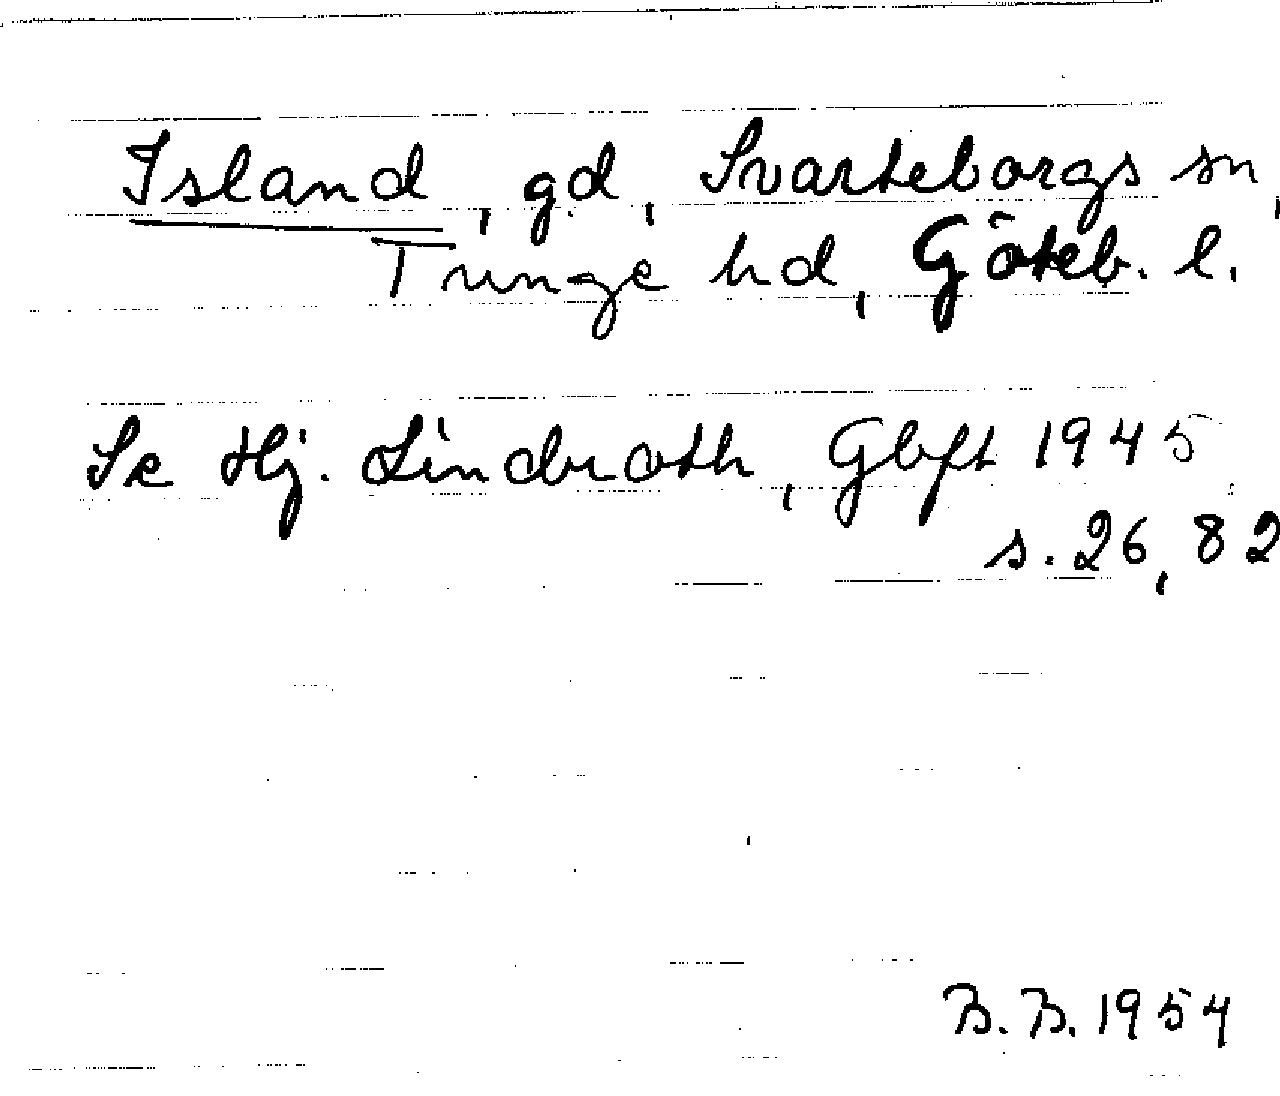 Island, gd, Svarteborgs sn,
Tunge hd, Göteb. l.
Se Hj. Lindroth, Gbft 1945
s. 26, 82
B. B. 1954